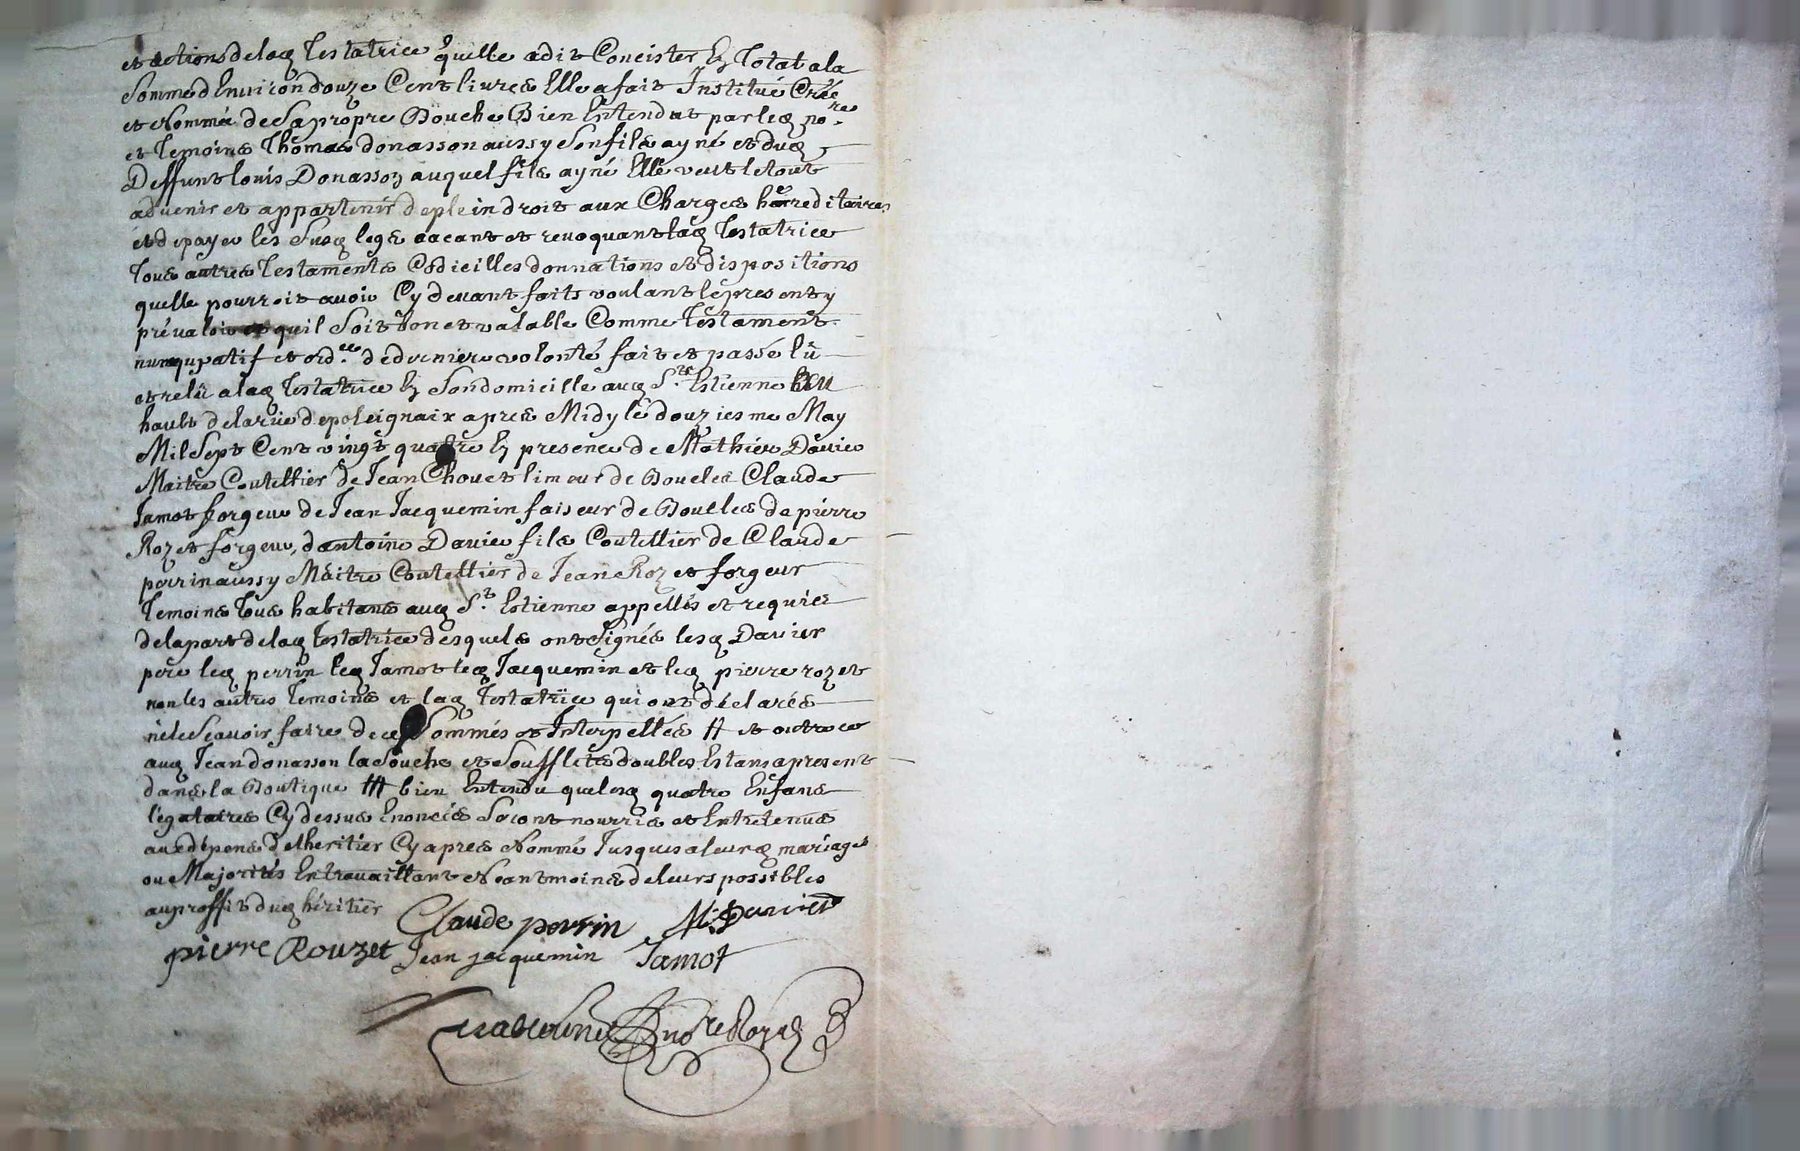 et actions de lad Testatrice qu'elle a dit Concister En Total a la
Somme d'Environ douze Cent livres Elle a fait Institué Créé
et Nommé de Sa propre Bouche Bien Entendut par led no.re
et Temoins Thomas Donasson aussy Son fils ayné et dud
Deffunt louis Donasson auquel fils ayné Elle veut le tout
advenir et appartenir de plein droit aux Charges hérreditaires
et de payer les Susd legs cacant et revoquant lad Testatrice
Tous autres Testaments Codicilles donnations et dispositions
quelle pourroit avoir Cy devant faits voulant le present y
prévaloir et quil Soit bon et valable Comme Testament
nunqupatif et ord.ce de derniere volonté fait et passé lü
et relü a lad Testatrice En Son domicille aud S.t Estienne
hault de la rue de poleignaix apres Midy le douziesme May
Mil Sept Cent vingt quatre En presence de Mathieu Davier
Maitre Coutellier de Jean Chouet limeur de Boucles Claude
Jamot forgeur de Jean Jacquemin faiseur de Boucles de pierre
Rozet forgeur, d'antoine Davier fils Coutellier de Claude
perrin aussy Maitre Coutellier de Jean Rozet forgeur
Temoins Tous habitans aud S.t Estienne appellés et requis
de la part de lad Testatrice desquels ont Signés lesd Davier
pere led perrin led Jamot led Jacquemin et led pierre rozet
non les autres Temoins et lad Testatrice qui ont déclarés
ne le Scavoir faire de ce Sommés et Interpellés # et outre ce
aud Jean donasson la Souche et Soufflets doubles Estans a present
dans la Boutique # bien Entendu que lesd quatre Enfans
légataires Cy dessus Enoncés Seront nourris et Entretenus
aux dépens de l'heritier Cy apres Nommé Jusques a leurs mariages
ou Majorités En travaillant Néantmoins de leurs possibles
au proffit dud héritier
Claude perrin M: Davier
pierre Rouzet Jean jacquemin Jamot
no.re Royal